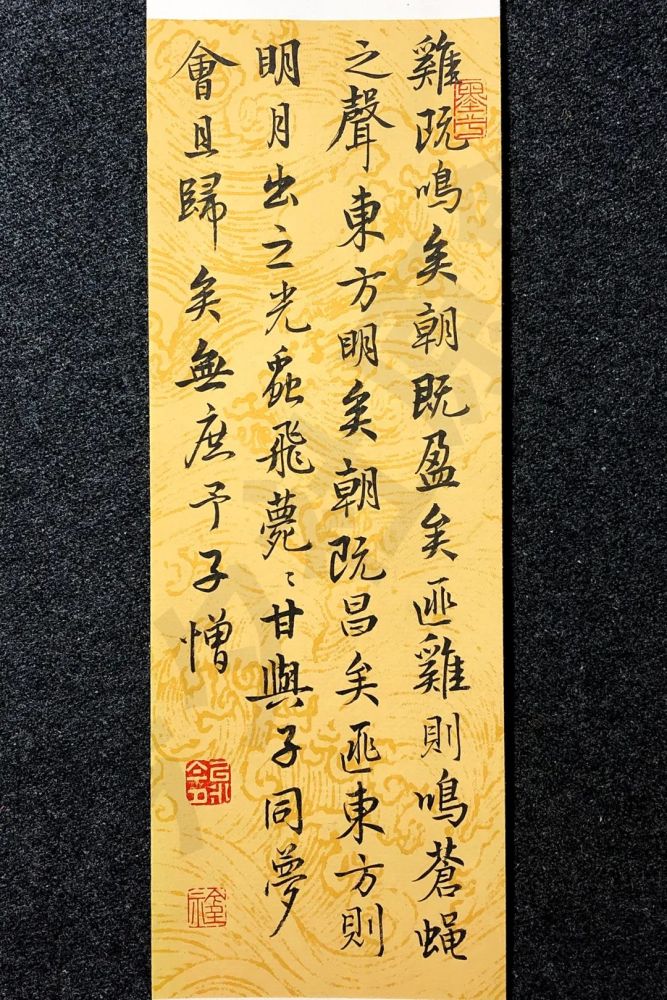 雞既鳴矣朝既盈矣匪雞則鳴蒼蝇
之聲東方明矣朝既昌矣匪東方則
明月出之光蟲飛薨〻甘與子同夢
會且歸矣無庶予子憎